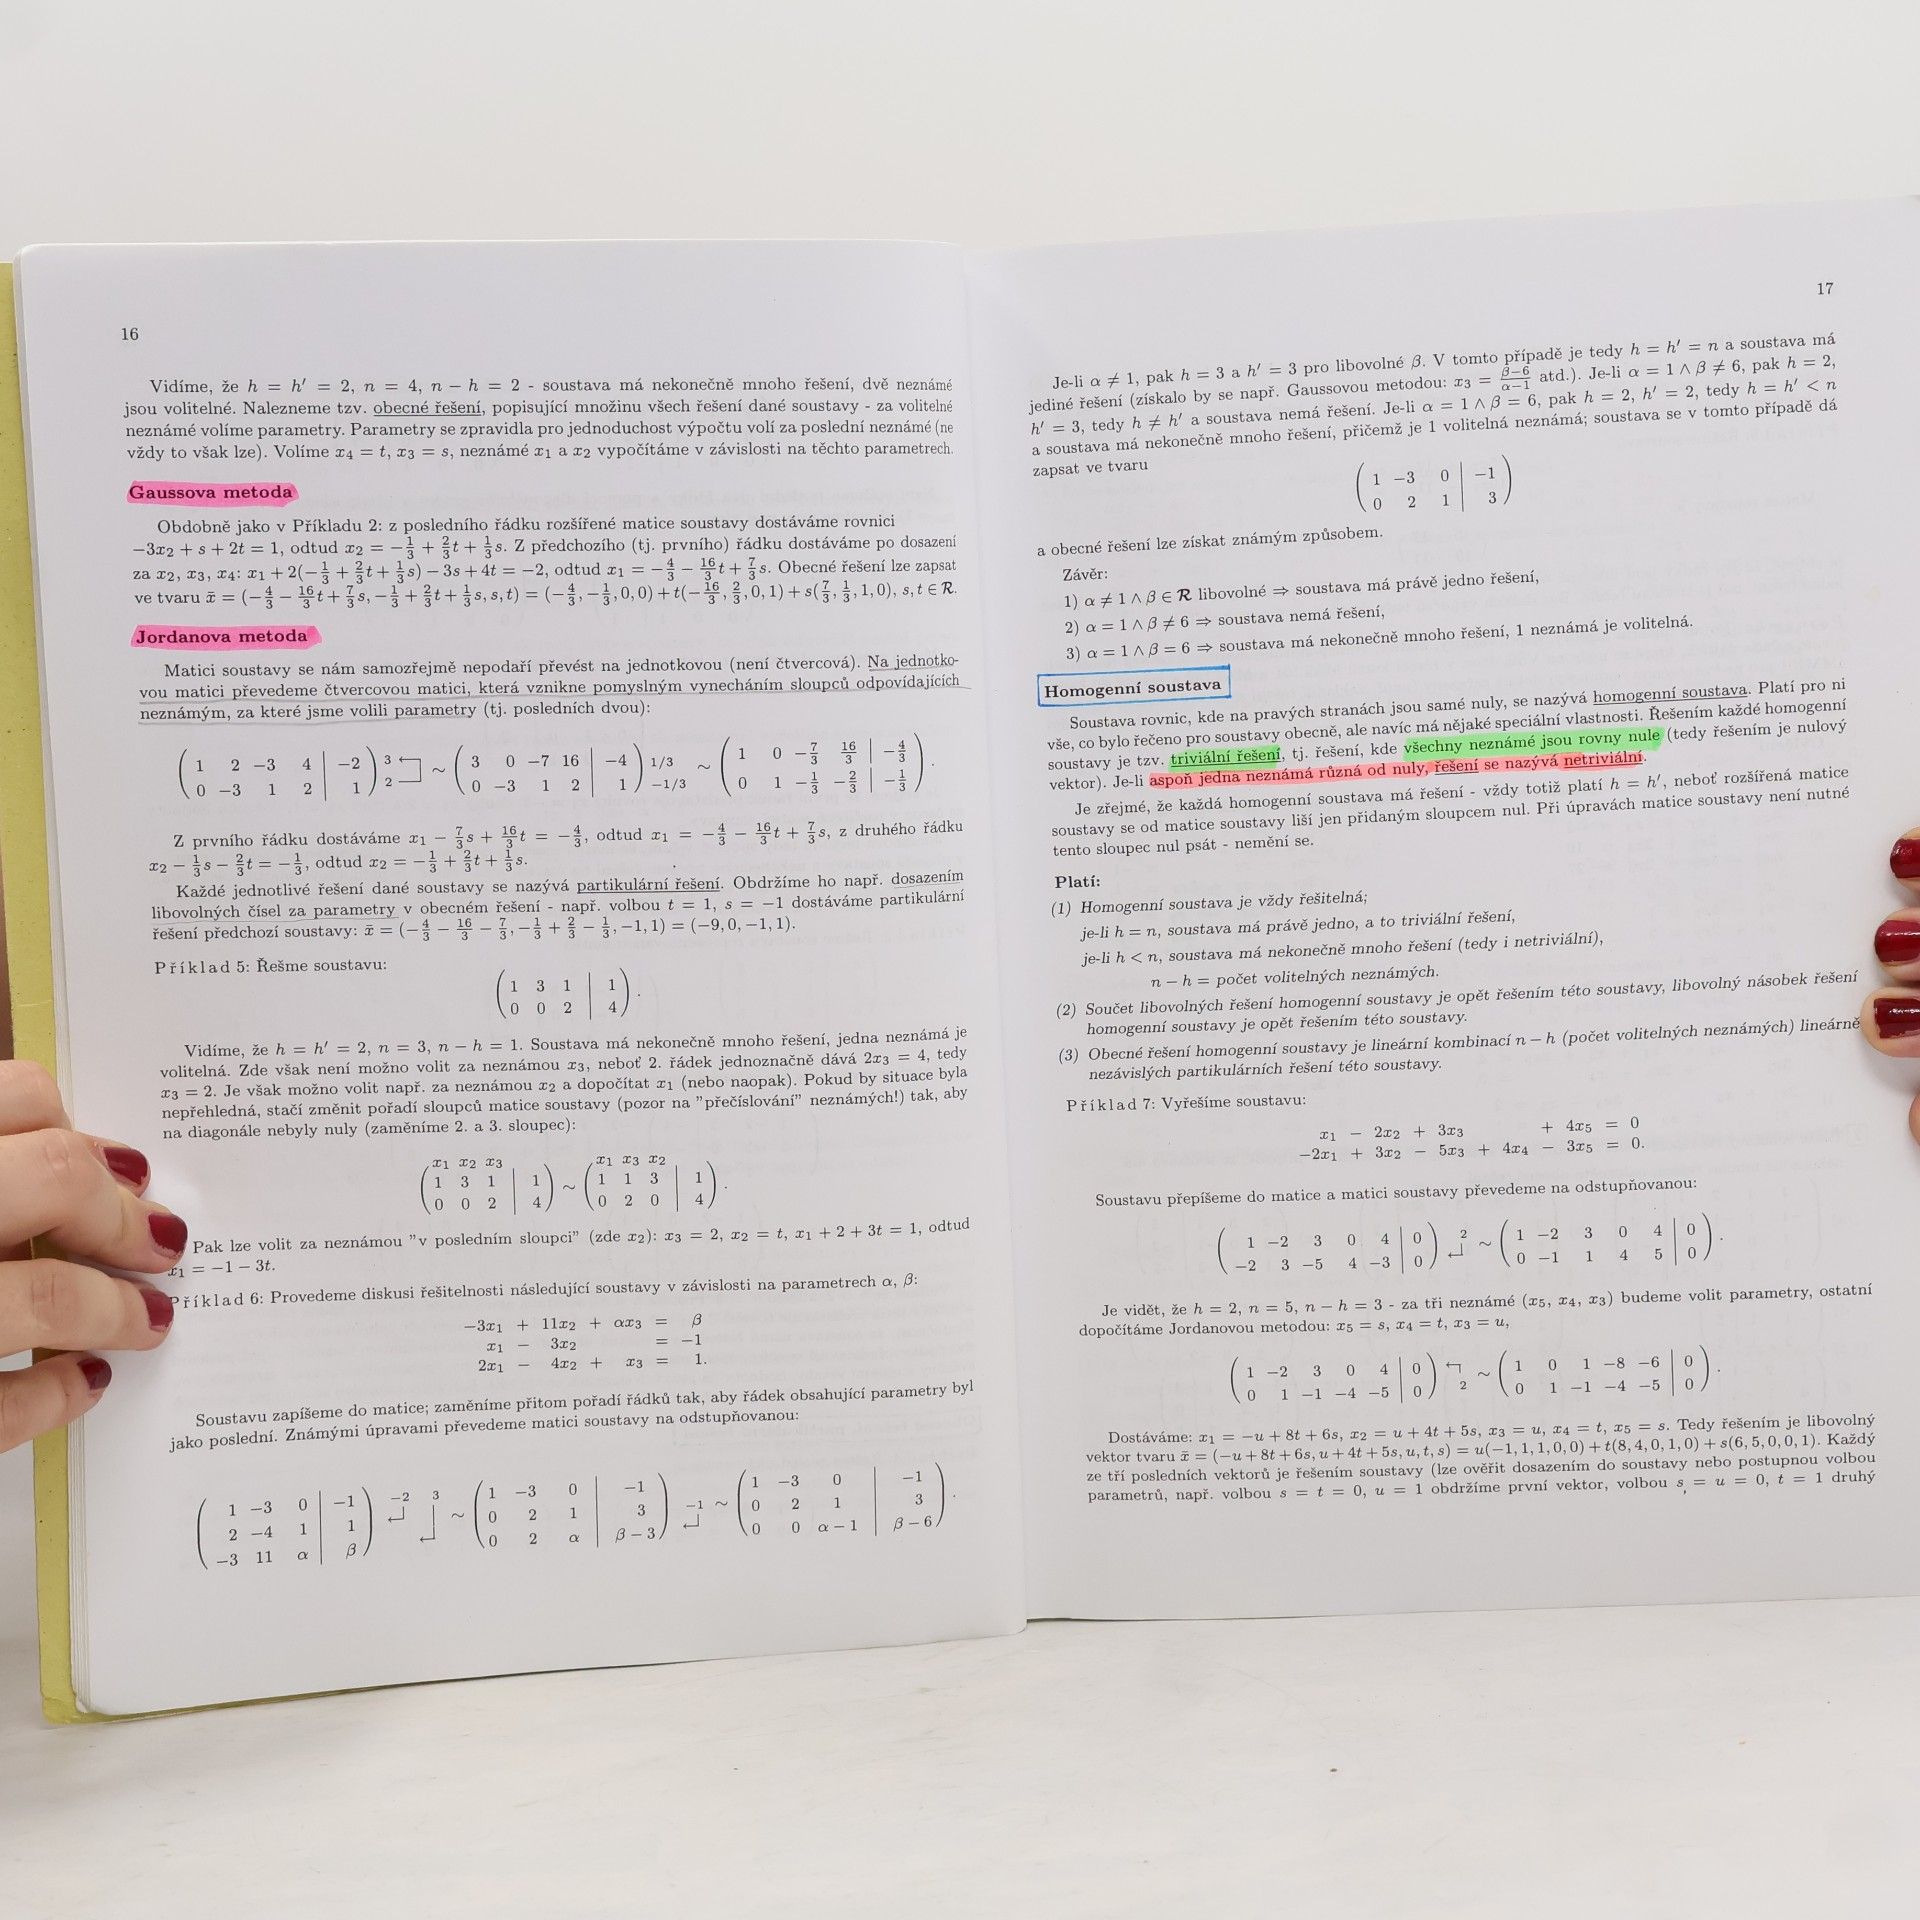 16
Vidíme, že h = h′ = 2, n = 4, n − h = 2 - soustava má nekonečně mnoho řešení, dvě neznámé
jsou volitelné. Nalezneme tzv. obecné řešení, popisující množinu všech řešení dané soustavy - za volitelné
neznámé volíme parametry. Parametry se zpravidla pro jednoduchost výpočtu volí za poslední neznámé (ne
vždy to však lze). Volíme x₄ = t, x₃ = s, neznámé x₁ a x₂ vypočítáme v závislosti na těchto parametrech.
Gaussova metoda
Obdobně jako v Příkladu 2: z posledního řádku rozšířené matice soustavy dostáváme rovnici
−3x₂ + s + 2t = 1, odtud x₂ = −1/3 + 2/3 t + 1/3 s. Z předchozího (tj. prvního) řádku dostáváme po dosazení
za x₂, x₃, x₄: x₁ + 2(−1/3 + 2/3 t + 1/3 s) − 3s + 4t = −2, odtud x₁ = −4/3 − 16/3 t + 7/3 s. Obecné řešení lze zapsat
ve tvaru x̄ = (−4/3 − 16/3 t + 7/3 s, −1/3 + 2/3 t + 1/3 s, s, t) = (−4/3, −1/3, 0, 0) + t(−16/3, 2/3, 0, 1) + s(7/3, 1/3, 1, 0), s, t ∈ R.
Jordanova metoda
Matici soustavy se nám samozřejmě nepodaří převést na jednotkovou (není čtvercová). Na jednotko-
vou matici převedeme čtvercovou matici, která vznikne pomyslným vynecháním sloupců odpovídajících
neznámým, za které jsme volili parametry (tj. posledních dvou):
( 1 2 −3 4 | −2 ) 3 ∼ ( 3 0 −7 16 | −4 ) 1/3 ∼ ( 1 0 −7/3 16/3 | −4/3 )
( 0 −3 1 2 | 1 ) 2 ( 0 −3 1 2 | 1 ) −1/3 ( 0 1 −1/3 −2/3 | −1/3 ).
Z prvního řádku dostáváme x₁ − 7/3 s + 16/3 t = −4/3, odtud x₁ = −4/3 − 16/3 t + 7/3 s, z druhého řádku
x₂ − 1/3 s − 2/3 t = −1/3, odtud x₂ = −1/3 + 2/3 t + 1/3 s.
Každé jednotlivé řešení dané soustavy se nazývá partikulární řešení. Obdržíme ho např. dosazením
libovolných čísel za parametry v obecném řešení - např. volbou t = 1, s = −1 dostáváme partikulární
řešení předchozí soustavy: x̄ = (−4/3 − 16/3 − 7/3, −1/3 + 2/3 − 1/3, −1, 1) = (−9, 0, −1, 1).
Příklad 5: Řešme soustavu:
( 1 3 1 | 1 )
( 0 0 2 | 4 ).
Vidíme, že h = h′ = 2, n = 3, n − h = 1. Soustava má nekonečně mnoho řešení, jedna neznámá je
volitelná. Zde však není možno volit za neznámou x₃, neboť 2. řádek jednoznačně dává 2x₃ = 4, tedy
x₃ = 2. Je však možno volit např. za neznámou x₂ a dopočítat x₁ (nebo naopak). Pokud by situace byla
nepřehledná, stačí změnit pořadí sloupců matice soustavy (pozor na ”přečíslování” neznámých!) tak, aby
na diagonále nebyly nuly (zaměníme 2. a 3. sloupec):
x₁ x₂ x₃ x₁ x₃ x₂
( 1 3 1 | 1 ) ∼ ( 1 1 3 | 1 )
( 0 0 2 | 4 ) ( 0 2 0 | 4 ).
Pak lze volit za neznámou ”v posledním sloupci” (zde x₂): x₃ = 2, x₂ = t, x₁ + 2 + 3t = 1, odtud
x₁ = −1 − 3t.
Příklad 6: Provedeme diskusi řešitelnosti následující soustavy v závislosti na parametrech α, β:
−3x₁ + 11x₂ + αx₃ = β
x₁ − 3x₂ = −1
2x₁ − 4x₂ + x₃ = 1.
Soustavu zapíšeme do matice; zaměníme přitom pořadí řádků tak, aby řádek obsahující parametry byl
jako poslední. Známými úpravami převedeme matici soustavy na odstupňovanou:
( 1 −3 0 | −1 ) −2 3 ( 1 −3 0 | −1 ) ( 1 −3 0 | −1 )
( 2 −4 1 | 1 ) ∼ ( 0 2 1 | 3 ) −1 ∼ ( 0 2 1 | 3 )
( −3 11 α | β ) ( 0 2 α | β − 3 ) ( 0 0 α − 1 | β − 6 ).
17
Je-li α ≠ 1, pak h = 3 a h′ = 3 pro libovolné β. V tomto případě je tedy h = h′ = n a soustava má
jediné řešení (získalo by se např. Gaussovou metodou: x₃ = (β−6)/(α−1) atd.). Je-li α = 1 ∧ β ≠ 6, pak h = 2,
h′ = 3, tedy h ≠ h′ a soustava nemá řešení. Je-li α = 1 ∧ β = 6, pak h = 2, h′ = 2, tedy h = h′ < n
a soustava má nekonečně mnoho řešení, přičemž je 1 volitelná neznámá; soustava se v tomto případě dá
zapsat ve tvaru
( 1 −3 0 | −1 )
( 0 2 1 | 3 )
a obecné řešení lze získat známým způsobem.
Závěr:
1) α ≠ 1 ∧ β ∈ R libovolné ⇒ soustava má právě jedno řešení,
2) α = 1 ∧ β ≠ 6 ⇒ soustava nemá řešení,
3) α = 1 ∧ β = 6 ⇒ soustava má nekonečně mnoho řešení, 1 neznámá je volitelná.
Homogenní soustava
Soustava rovnic, kde na pravých stranách jsou samé nuly, se nazývá homogenní soustava. Platí pro ni
vše, co bylo řečeno pro soustavy obecně, ale navíc má nějaké speciální vlastnosti. Řešením každé homogenní
soustavy je tzv. triviální řešení, tj. řešení, kde všechny neznámé jsou rovny nule (tedy řešením je nulový
vektor). Je-li aspoň jedna neznámá různá od nuly, řešení se nazývá netriviální.
Je zřejmé, že každá homogenní soustava má řešení - vždy totiž platí h = h′, neboť rozšířená matice
soustavy se od matice soustavy liší jen přidaným sloupcem nul. Při úpravách matice soustavy není nutné
tento sloupec nul psát - nemění se.
Platí:
(1) Homogenní soustava je vždy řešitelná;
je-li h = n, soustava má právě jedno, a to triviální řešení,
je-li h < n, soustava má nekonečně mnoho řešení (tedy i netriviální),
n − h = počet volitelných neznámých.
(2) Součet libovolných řešení homogenní soustavy je opět řešením této soustavy, libovolný násobek řešení
homogenní soustavy je opět řešením této soustavy.
(3) Obecné řešení homogenní soustavy je lineární kombinací n − h (počet volitelných neznámých) lineárně
nezávislých partikulárních řešení této soustavy.
Příklad 7: Vyřešíme soustavu:
x₁ − 2x₂ + 3x₃ + 4x₅ = 0
−2x₁ + 3x₂ − 5x₃ + 4x₄ − 3x₅ = 0.
Soustavu přepíšeme do matice a matici soustavy převedeme na odstupňovanou:
( 1 −2 3 0 4 | 0 ) 2 ∼ ( 1 −2 3 0 4 | 0 )
( −2 3 −5 4 −3 | 0 ) ( 0 −1 1 4 5 | 0 ).
Je vidět, že h = 2, n = 5, n − h = 3 - za tři neznámé (x₅, x₄, x₃) budeme volit parametry, ostatní
dopočítáme Jordanovou metodou: x₅ = s, x₄ = t, x₃ = u,
( 1 −2 3 0 4 | 0 ) ∼ ( 1 0 1 −8 −6 | 0 )
( 0 1 −1 −4 −5 | 0 ) 2 ( 0 1 −1 −4 −5 | 0 ).
Dostáváme: x₁ = −u + 8t + 6s, x₂ = u + 4t + 5s, x₃ = u, x₄ = t, x₅ = s. Tedy řešením je libovolný
vektor tvaru x̄ = (−u + 8t + 6s, u + 4t + 5s, u, t, s) = u(−1, 1, 1, 0, 0) + t(8, 4, 0, 1, 0) + s(6, 5, 0, 0, 1). Každý
ze tří posledních vektorů je řešením soustavy (lze ověřit dosazením do soustavy nebo postupnou volbou
parametrů, např. volbou s = t = 0, u = 1 obdržíme první vektor, volbou s = u = 0, t = 1 druhý